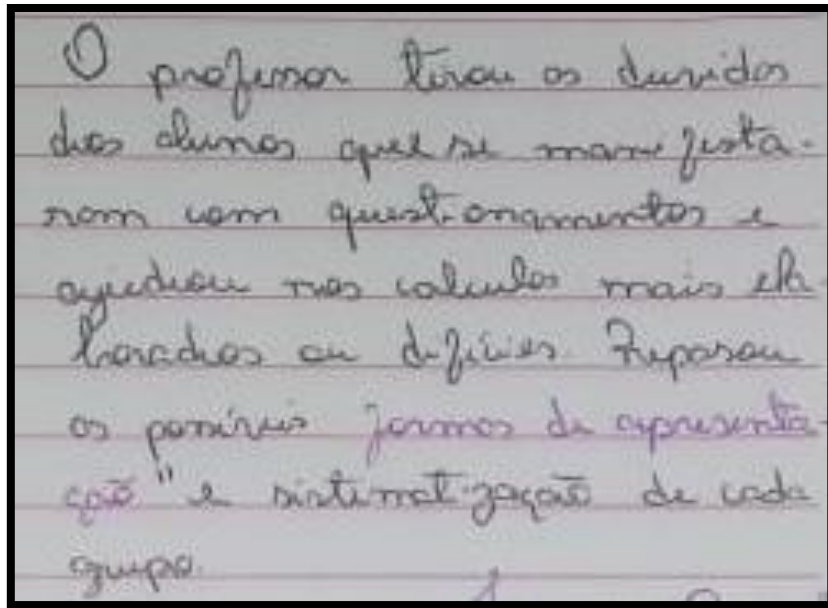 O professor tirou as duvidas
dos alunos que se manifesta-
ram com questionamentos e
ajudou nos calculos mais ela-
borados ou dificies. Repassou
as possíveis formas de apresenta-
ção" e sistematização de cada
grupo.